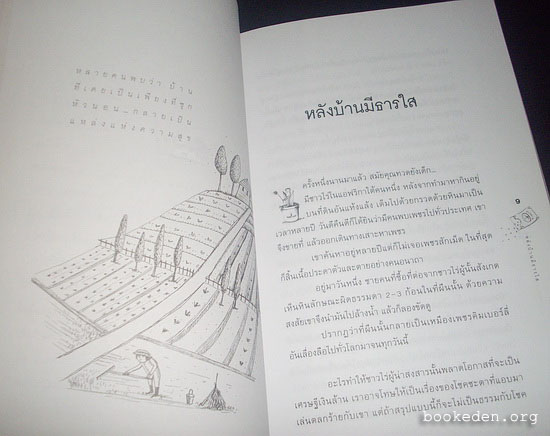 หลายคนพบว่า บ้าน
ที่เคยเป็นเพียงที่ซุก
หัวนอน...กลายเป็น
แหล่งแห่งความสุข
หลังบ้านมีธารใส
ครั้งหนึ่งนานมาแล้ว สมัยคุณทวดยังเด็ก...
มีชาวไร่ในแอฟริกาใต้คนหนึ่ง หลังจากทำมาหากินอยู่
บนที่ดินอันแห้งแล้ง เต็มไปด้วยกรวดด้วยหินมาเป็น
เวลาหลายปี วันดีคืนดีก็ได้ยินว่ามีคนพบเพชรไปทั่วประเทศ เขา
จึงขายที่ แล้วออกเดินทางเสาะหาเพชร
เขาค้นหาอยู่หลายปีแต่ก็ไม่เจอเพชรสักเม็ด ในที่สุด
ก็สิ้นเนื้อประดาตัวและตายอย่างคนอนาถา
อยู่มาวันหนึ่ง ชายคนที่ซื้อที่ต่อจากชาวไร่ผู้นั้นสังเกต
เห็นหินลักษณะผิดธรรมดา 2-3 ก้อนในที่ผืนนั้น ด้วยความ
สงสัยเขาจึงนำมันไปล้างน้ำ แล้วก็ลองขัดดู
ปรากฏว่าที่ผืนนั้นกลายเป็นเหมืองเพชรคิมเบอร์ลี่
อันเลื่องลือไปทั่วโลกมาจนทุกวันนี้
อะไรทำให้ชาวไร่ผู้น่าสงสารนั้นพลาดโอกาสที่จะเป็น
เศรษฐีเงินล้าน เราอาจโทษให้เป็นเรื่องของโชคชะตาที่แอบมา
เล่นตลกร้ายกับเขา แต่ถ้าสรุปแบบนี้ก็จะไม่เป็นธรรมกับโชค
9
หลังบ้านมีธารใส
bookeden.org